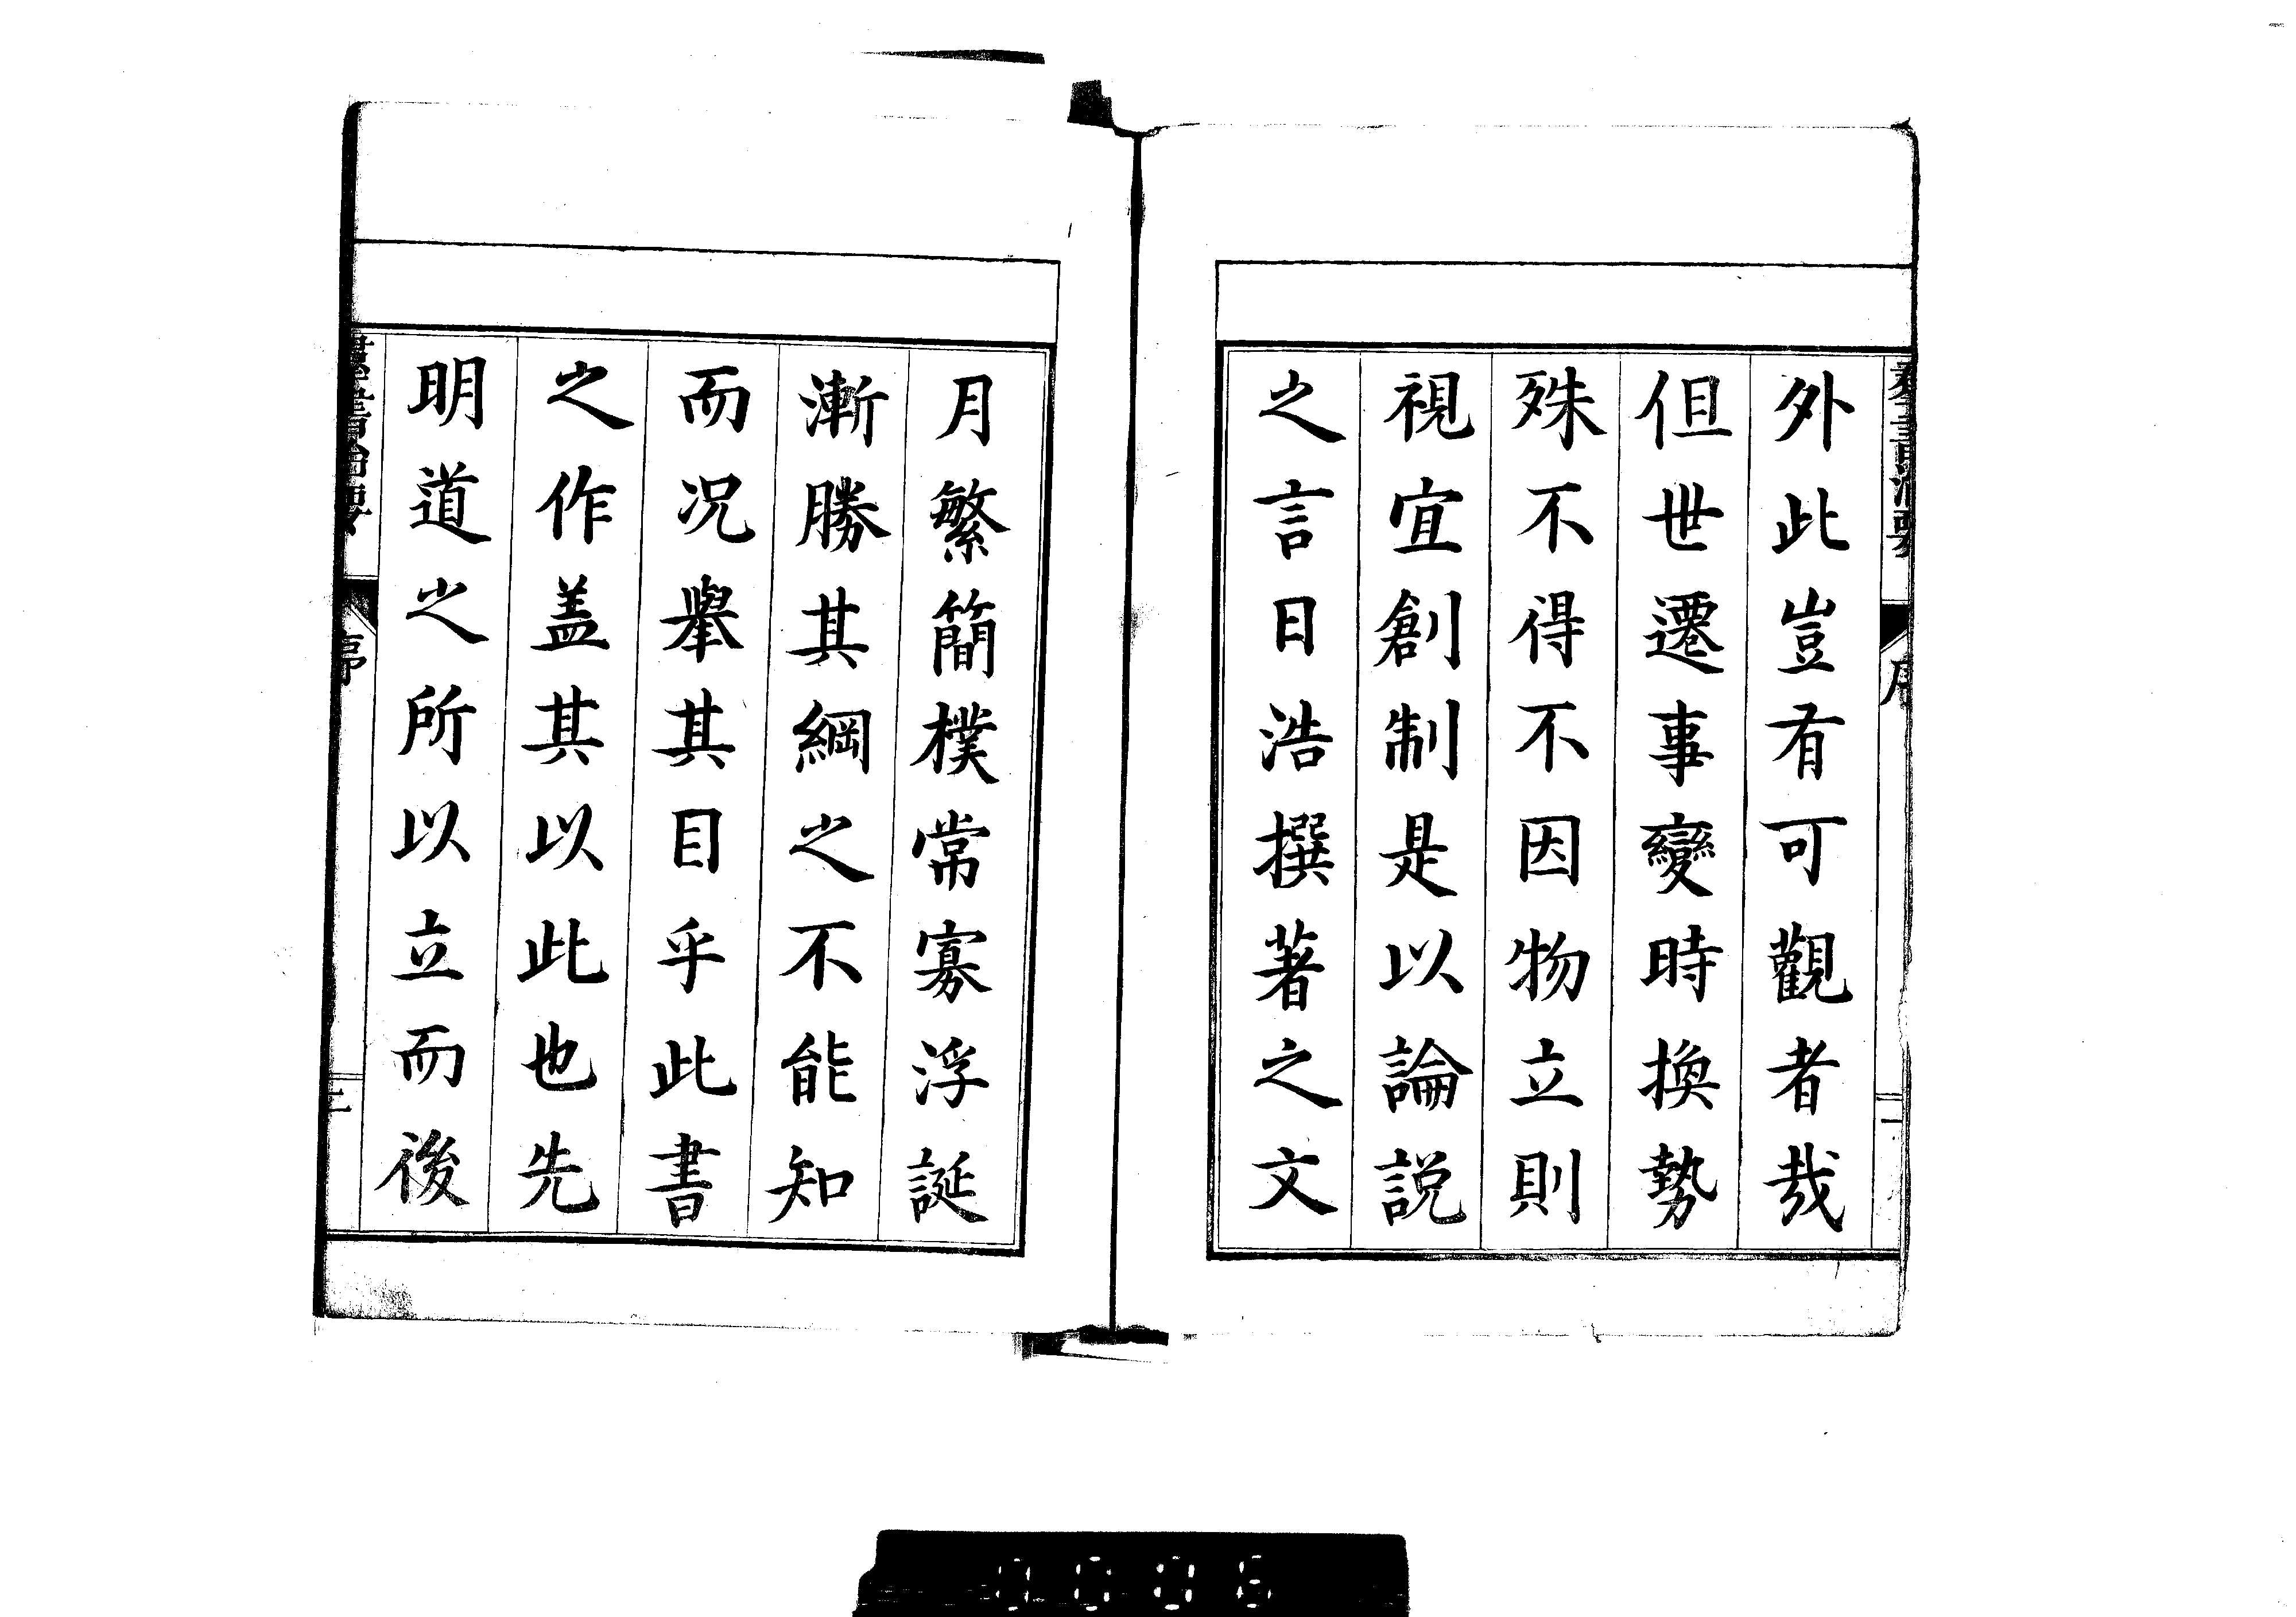 外此豈有可觀者哉
但世遷事變時換勢
殊不得不因物立則
視宜創制是以論說
之言日浩撰著之文
月繁簡樸常寡浮誕
漸勝其綱之不能知
而況舉其目乎此書
之作盖其以此也先
明道之所以立而後
序